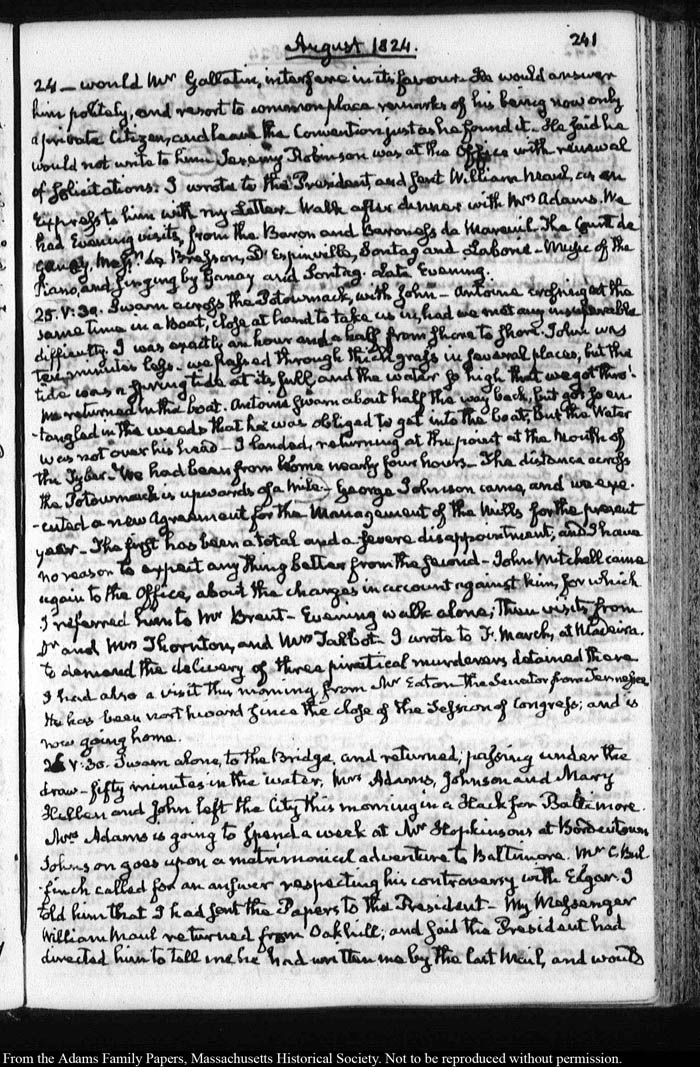 August 1824.
241
24 — would Mr Gallatin, interfere in its favour. He would answer
him politely, and resort to common place remarks of his being now only
a private Citizen, and leave the Convention just as he found it. He said he
would not write to him. Jeremy Robinson was at the Office with renewal
of solicitations. I wrote to the President and sent William Maul, as an
Express to him with my Letter. Walk after dinner with Mrs Adams. We
had Evening visits, from the Baron and Baroness de Mareuil. The Count de
Ganay, Messrs. de Bresson, D'Espinville, Sontag and Laborie — Music of the
Piano, and singing by Ganay and Sontag. Late Evening.
25. V:30. Swam across the Potowmack, with John — Antoine crossing at the
same time in a Boat, close at hand to take us in, had we met any insuperable
difficulty. I was exactly an hour and a half from shore to shore. John was
ten minutes less. we passed through thick grass in several places, but the
tide was a spring tide at its full, and the water so high that we got thro'.
We returned in the boat. Antoine swam about half the way back, but got so en
-tangled in the weeds that he was obliged to get into the boat, But the Water
was not over his head — I landed, returning at the point at the Mouth of
the Tyber. We had been from home nearly four hours — The distance across
the Potowmack is upwards of a mile — George Johnson came, and we exe-
-cuted a new Agreement for the Management of the Mills for the present
year — The first has been a total and a severe disappointment; and I have
no reason to expect any thing better from the second — John Mitchell came
again to the Office, about the charges in account against him, for which
I referred him to Mr Brent — Evening walk alone; Then visits from
Dr and Mrs Thornton, and Mrs Talbot. I wrote to F. March, at Madeira,
to demand the delivery of three piratical murderers detained there
I had also a visit this morning from Mr Eaton the Senator from Tennessee
He has been northward since the close of the Session of Congress; and is
now going home.
26 V:30. Swam alone, to the Bridge, and returned; passing under the
draw — fifty minutes in the water, Mrs Adams, Johnson and Mary
Hellen and John left the City this morning in a Hack for Baltimore.
Mrs Adams is going to spend a week at Mr Hopkinsons at Bordentown
Johnson goes upon a matrimonial adventure to Baltimore. Mr C. Bul-
-finch called for an answer respecting his controversy with Elgar. I
told him that I had sent the Papers to the President — My Messenger
William Maul returned from Oakhill; and said the President had
directed him to tell me he had written me by the last Mail, and would
From the Adams Family Papers, Massachusetts Historical Society. Not to be reproduced without permission.